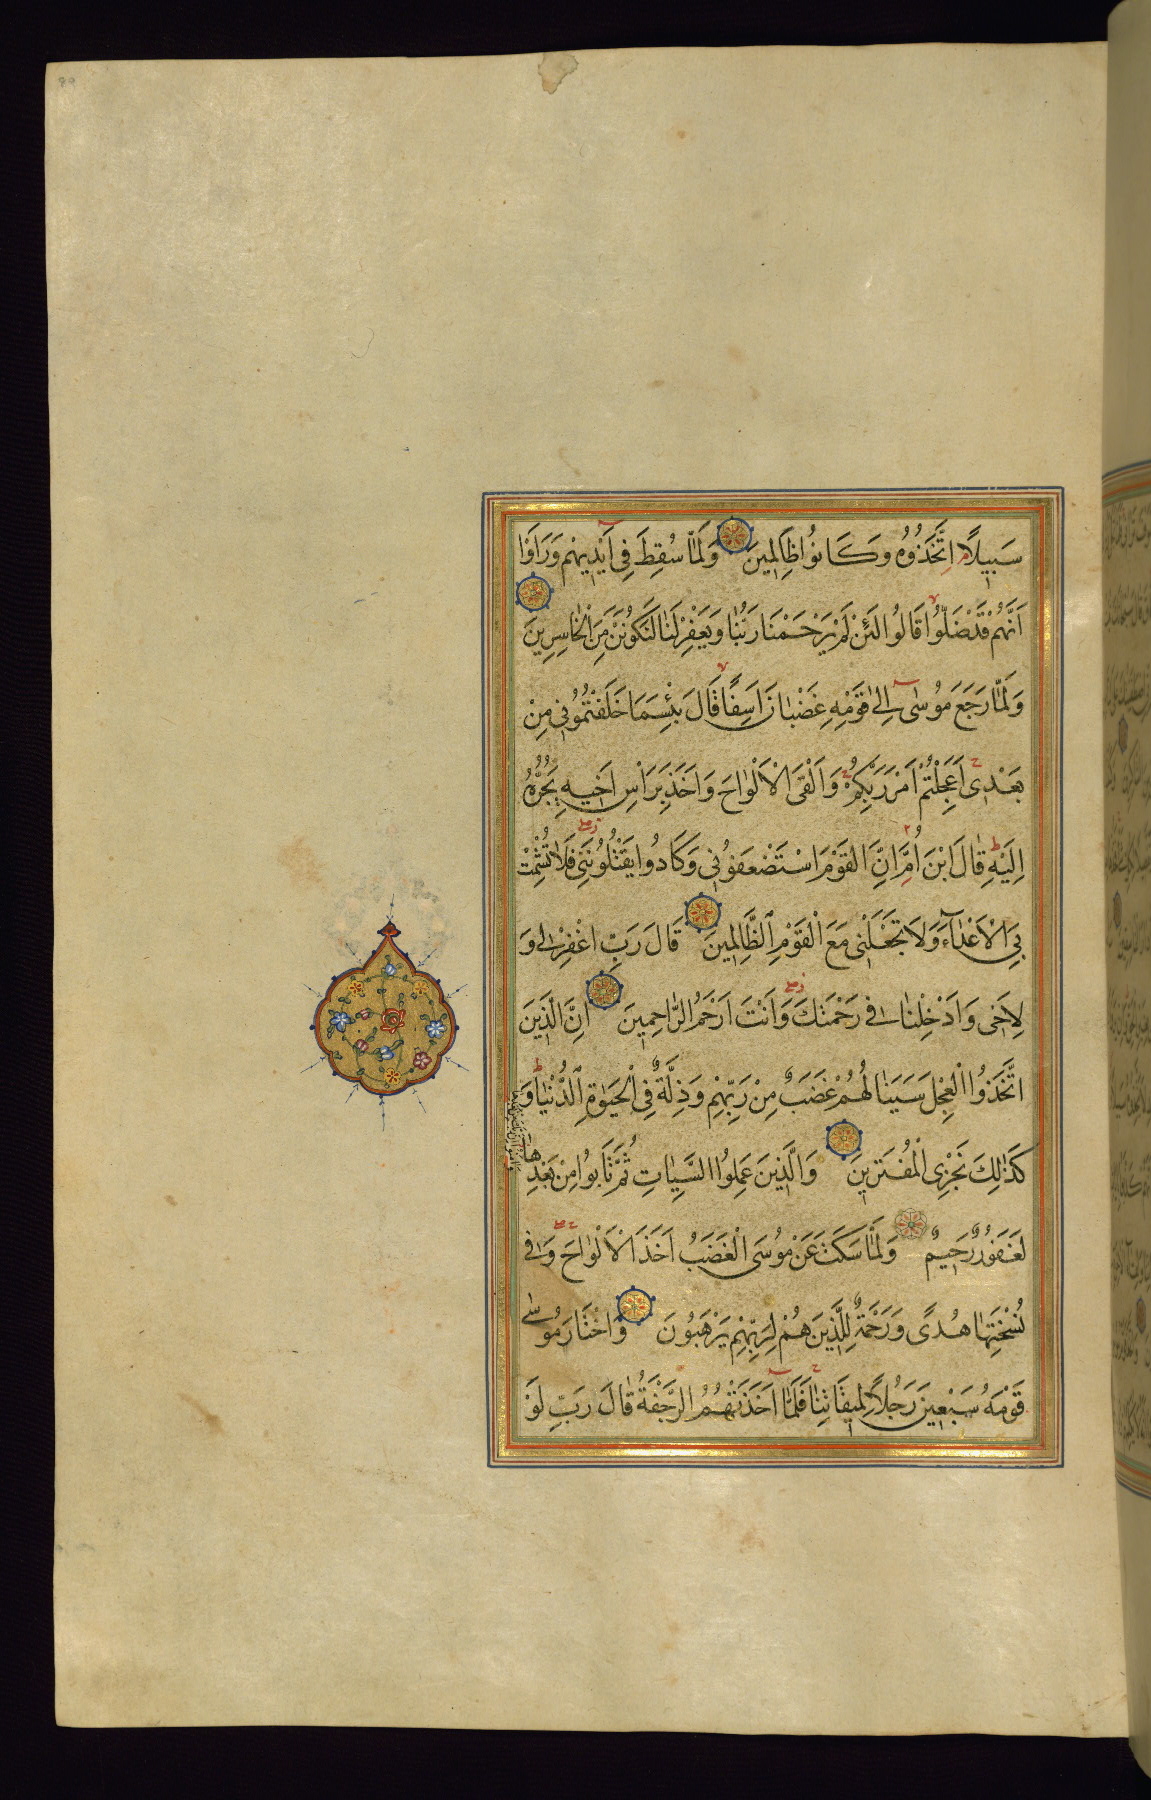 سَبِيلًا اتَّخَذُوهُ وَكَانُوا ظَالِمِينَ وَلَمَّا سُقِطَ فِي أَيْدِيهِمْ وَرَأَوْا
أَنَّهُمْ قَدْ ضَلُّوا قَالُوا لَئِنْ لَمْ يَرْحَمْنَا رَبُّنَا وَيَغْفِرْ لَنَا لَنَكُونَنَّ مِنَ الْخَاسِرِينَ
وَلَمَّا رَجَعَ مُوسَى إِلَى قَوْمِهِ غَضْبَانَ أَسِفًا قَالَ بِئْسَمَا خَلَفْتُمُونِي مِنْ
بَعْدِي أَعَجِلْتُمْ أَمْرَ رَبِّكُمْ وَأَلْقَى الْأَلْوَاحَ وَأَخَذَ بِرَأْسِ أَخِيهِ يَجُرُّهُ
إِلَيْهِ قَالَ ابْنَ أُمَّ إِنَّ الْقَوْمَ اسْتَضْعَفُونِي وَكَادُوا يَقْتُلُونَنِي فَلَا تُشْمِتْ
بِيَ الْأَعْدَاءَ وَلَا تَجْعَلْنِي مَعَ الْقَوْمِ الظَّالِمِينَ قَالَ رَبِّ اغْفِرْ لِي وَ
لِأَخِي وَأَدْخِلْنَا فِي رَحْمَتِكَ وَأَنْتَ أَرْحَمُ الرَّاحِمِينَ إِنَّ الَّذِينَ
اتَّخَذُوا الْعِجْلَ سَيَنَالُهُمْ غَضَبٌ مِنْ رَبِّهِمْ وَذِلَّةٌ فِي الْحَيَوةِ الدُّنْيَا وَ
كَذَلِكَ نَجْزِي الْمُفْتَرِينَ وَالَّذِينَ عَمِلُوا السَّيِّئَاتِ ثُمَّ تَابُوا مِنْ بَعْدِهَا
وَآمَنُوا إِنَّ رَبَّكَ مِنْ بَعْدِهَا
لَغَفُورٌ رَحِيمٌ وَلَمَّا سَكَتَ عَنْ مُوسَى الْغَضَبُ أَخَذَ الْأَلْوَاحَ وَفِي
نُسْخَتِهَا هُدًى وَرَحْمَةٌ لِلَّذِينَ هُمْ لِرَبِّهِمْ يَرْهَبُونَ وَاخْتَارَ مُوسَى
قَوْمَهُ سَبْعِينَ رَجُلًا لِمِيقَاتِنَا فَلَمَّا أَخَذَتْهُمُ الرَّجْفَةُ قَالَ رَبِّ لَوْ